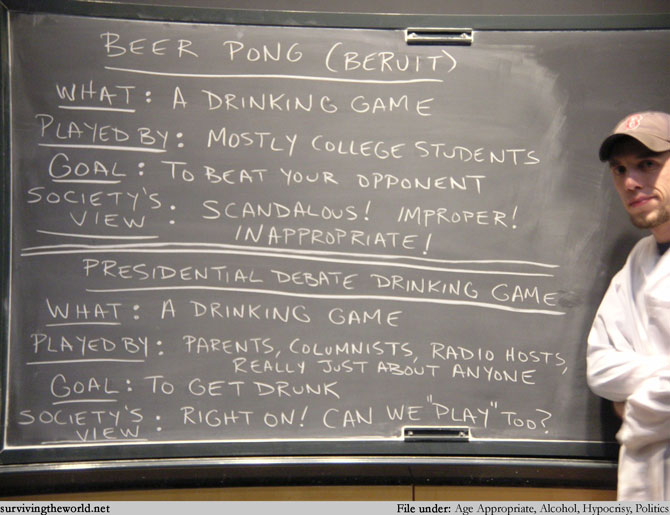 BEER PONG (BERUIT)
WHAT: A DRINKING GAME
PLAYED BY: MOSTLY COLLEGE STUDENTS
GOAL: TO BEAT YOUR OPPONENT
SOCIETY'S VIEW: SCANDALOUS! IMPROPER!
INAPPROPRIATE!
PRESIDENTIAL DEBATE DRINKING GAME
WHAT: A DRINKING GAME
PLAYED BY: PARENTS, COLUMNISTS, RADIO HOSTS,
REALLY JUST ABOUT ANYONE
GOAL: TO GET DRUNK
SOCIETY'S VIEW: RIGHT ON! CAN WE "PLAY" TOO?
survivingtheworld.net
File under: Age Appropriate, Alcohol, Hypocrisy, Politics